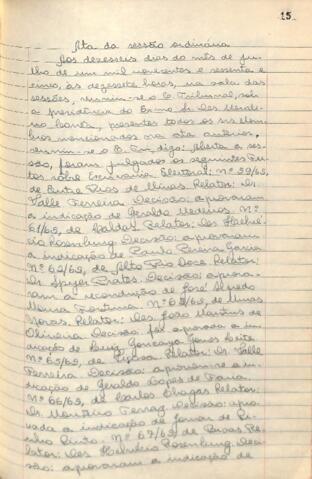 15
Ata da sessão ordinária
Aos dezesseis dias do mês de ju-
lho de um mil novecentos e sessenta e
cinco, às dezessete horas, na sala das
sessões, reuniu-se o E. Tribunal, sob
a presidência do Exmo. Sr. Des.
presentes todos os srs Mem-
bros mencionados na ata anterior,
reuniu-se o E. digo: Aberta a ses-
são, foram julgados os seguintes fei-
tos sobre Escrivania Eleitoral: Nº 59/65,
de Entre Rios de Minas. Relator: Dr.
Valle Ferreira. Decisão: aprovaram
a indicação de Geraldo Medeiros. Nº
61/62, de Caldas. Relator: Des. Helvé-
cio Rosenburg. Decisão: aprovaram
a indicação de Paulo Pereira Garcia
Nº 62/62, de Alto Rio Doce. Relator:
Dr. Spyer Prates. Decisão: aprova-
ram a recondução de José Alfredo
Moura Nº 63/62, de Minas
Novas. Relator: Des. João Martins de
Oliveira. Decisão: foi aprovada a in-
dicação de Luiz Gonzaga Gomes Leite
Nº 65/62, de Relator: Dr. Valle
Ferreira. Decisão: aprovou-se a in-
dicação de Geraldo Lopes de Faria.
Nº 66/62, de Carlos Chagas. Relator:
Dr. Monteiro Ferraz. Decisão: apro-
vada a indicação de de Ri-
Nº 67/62, de Buenos
lator: Des. Helvécio Rosenburg. Deci-
são: aprovaram a indicação de